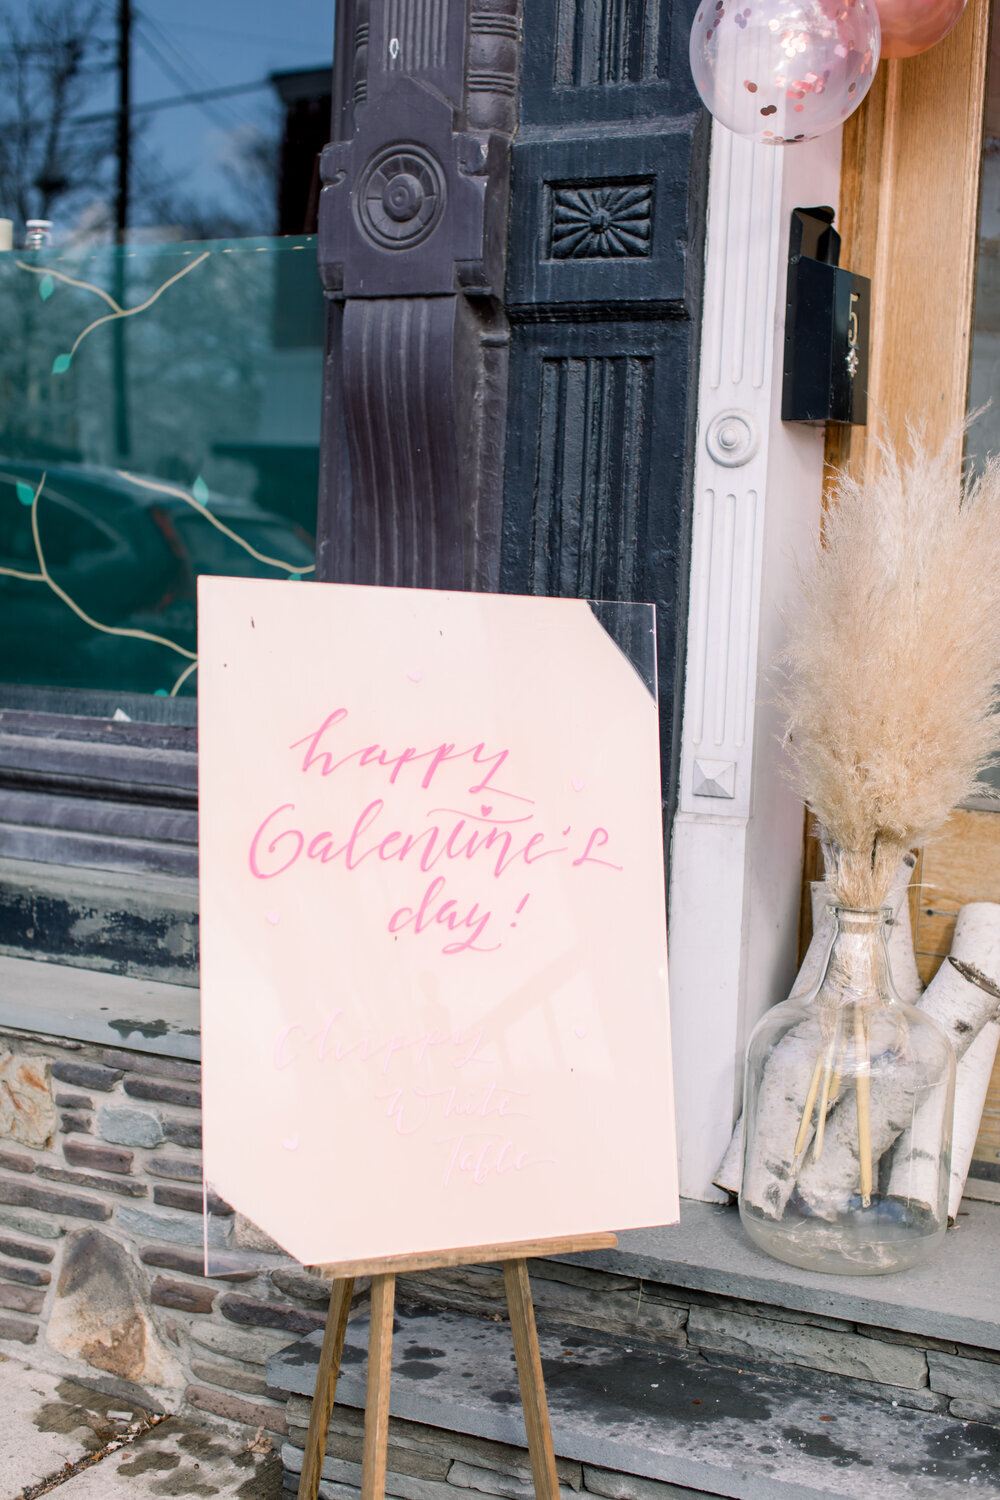 happy
Galentine's
day!
Chippy
White
Table
5